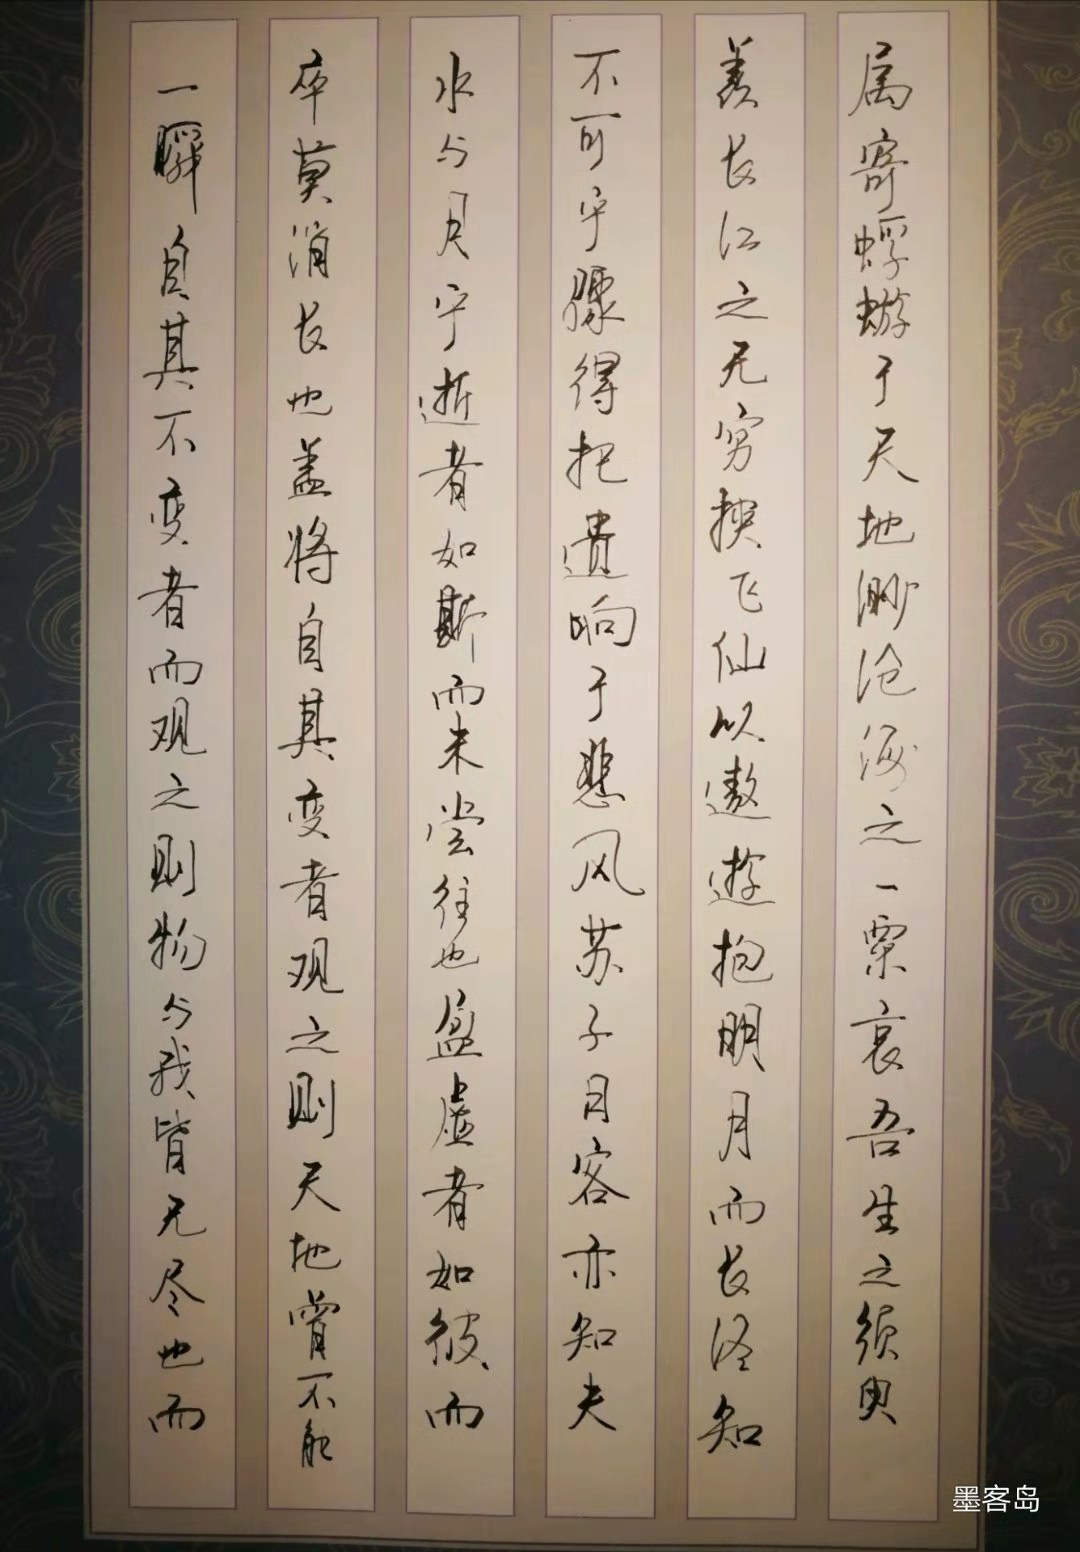 属寄蜉蝣于天地渺沧海之一粟哀吾生之须臾
羡长江之无穷挟飞仙以遨遊抱明月而长终知
不可乎骤得把遗响于悲风苏子曰客亦知夫
水与月乎逝者如斯而未尝往也盈虚者如彼而
卒莫消长也盖将自其变者观之则天地曾不能
一瞬自其不变者而观之则物与我皆无尽也而
墨客岛